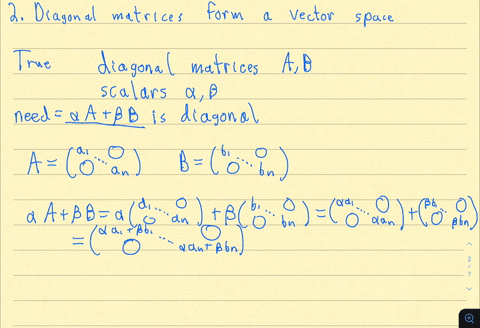 2. Diagonal matrices form a vector space
True diagonal matrices A, B
scalars α, β
need = αA + βB is diagonal
A = (a₁ ⋱ 0 0 aₙ) B = (b₁ ⋱ 0 0 bₙ)
αA + βB = α(a₁ ⋱ 0 0 aₙ) + β(b₁ ⋱ 0 0 bₙ) = (αa₁ ⋱ 0 0 αaₙ) + (βb₁ ⋱ 0 0 βbₙ)
= (αa₁ + βb₁ ⋱ 0 0 αaₙ + βbₙ)